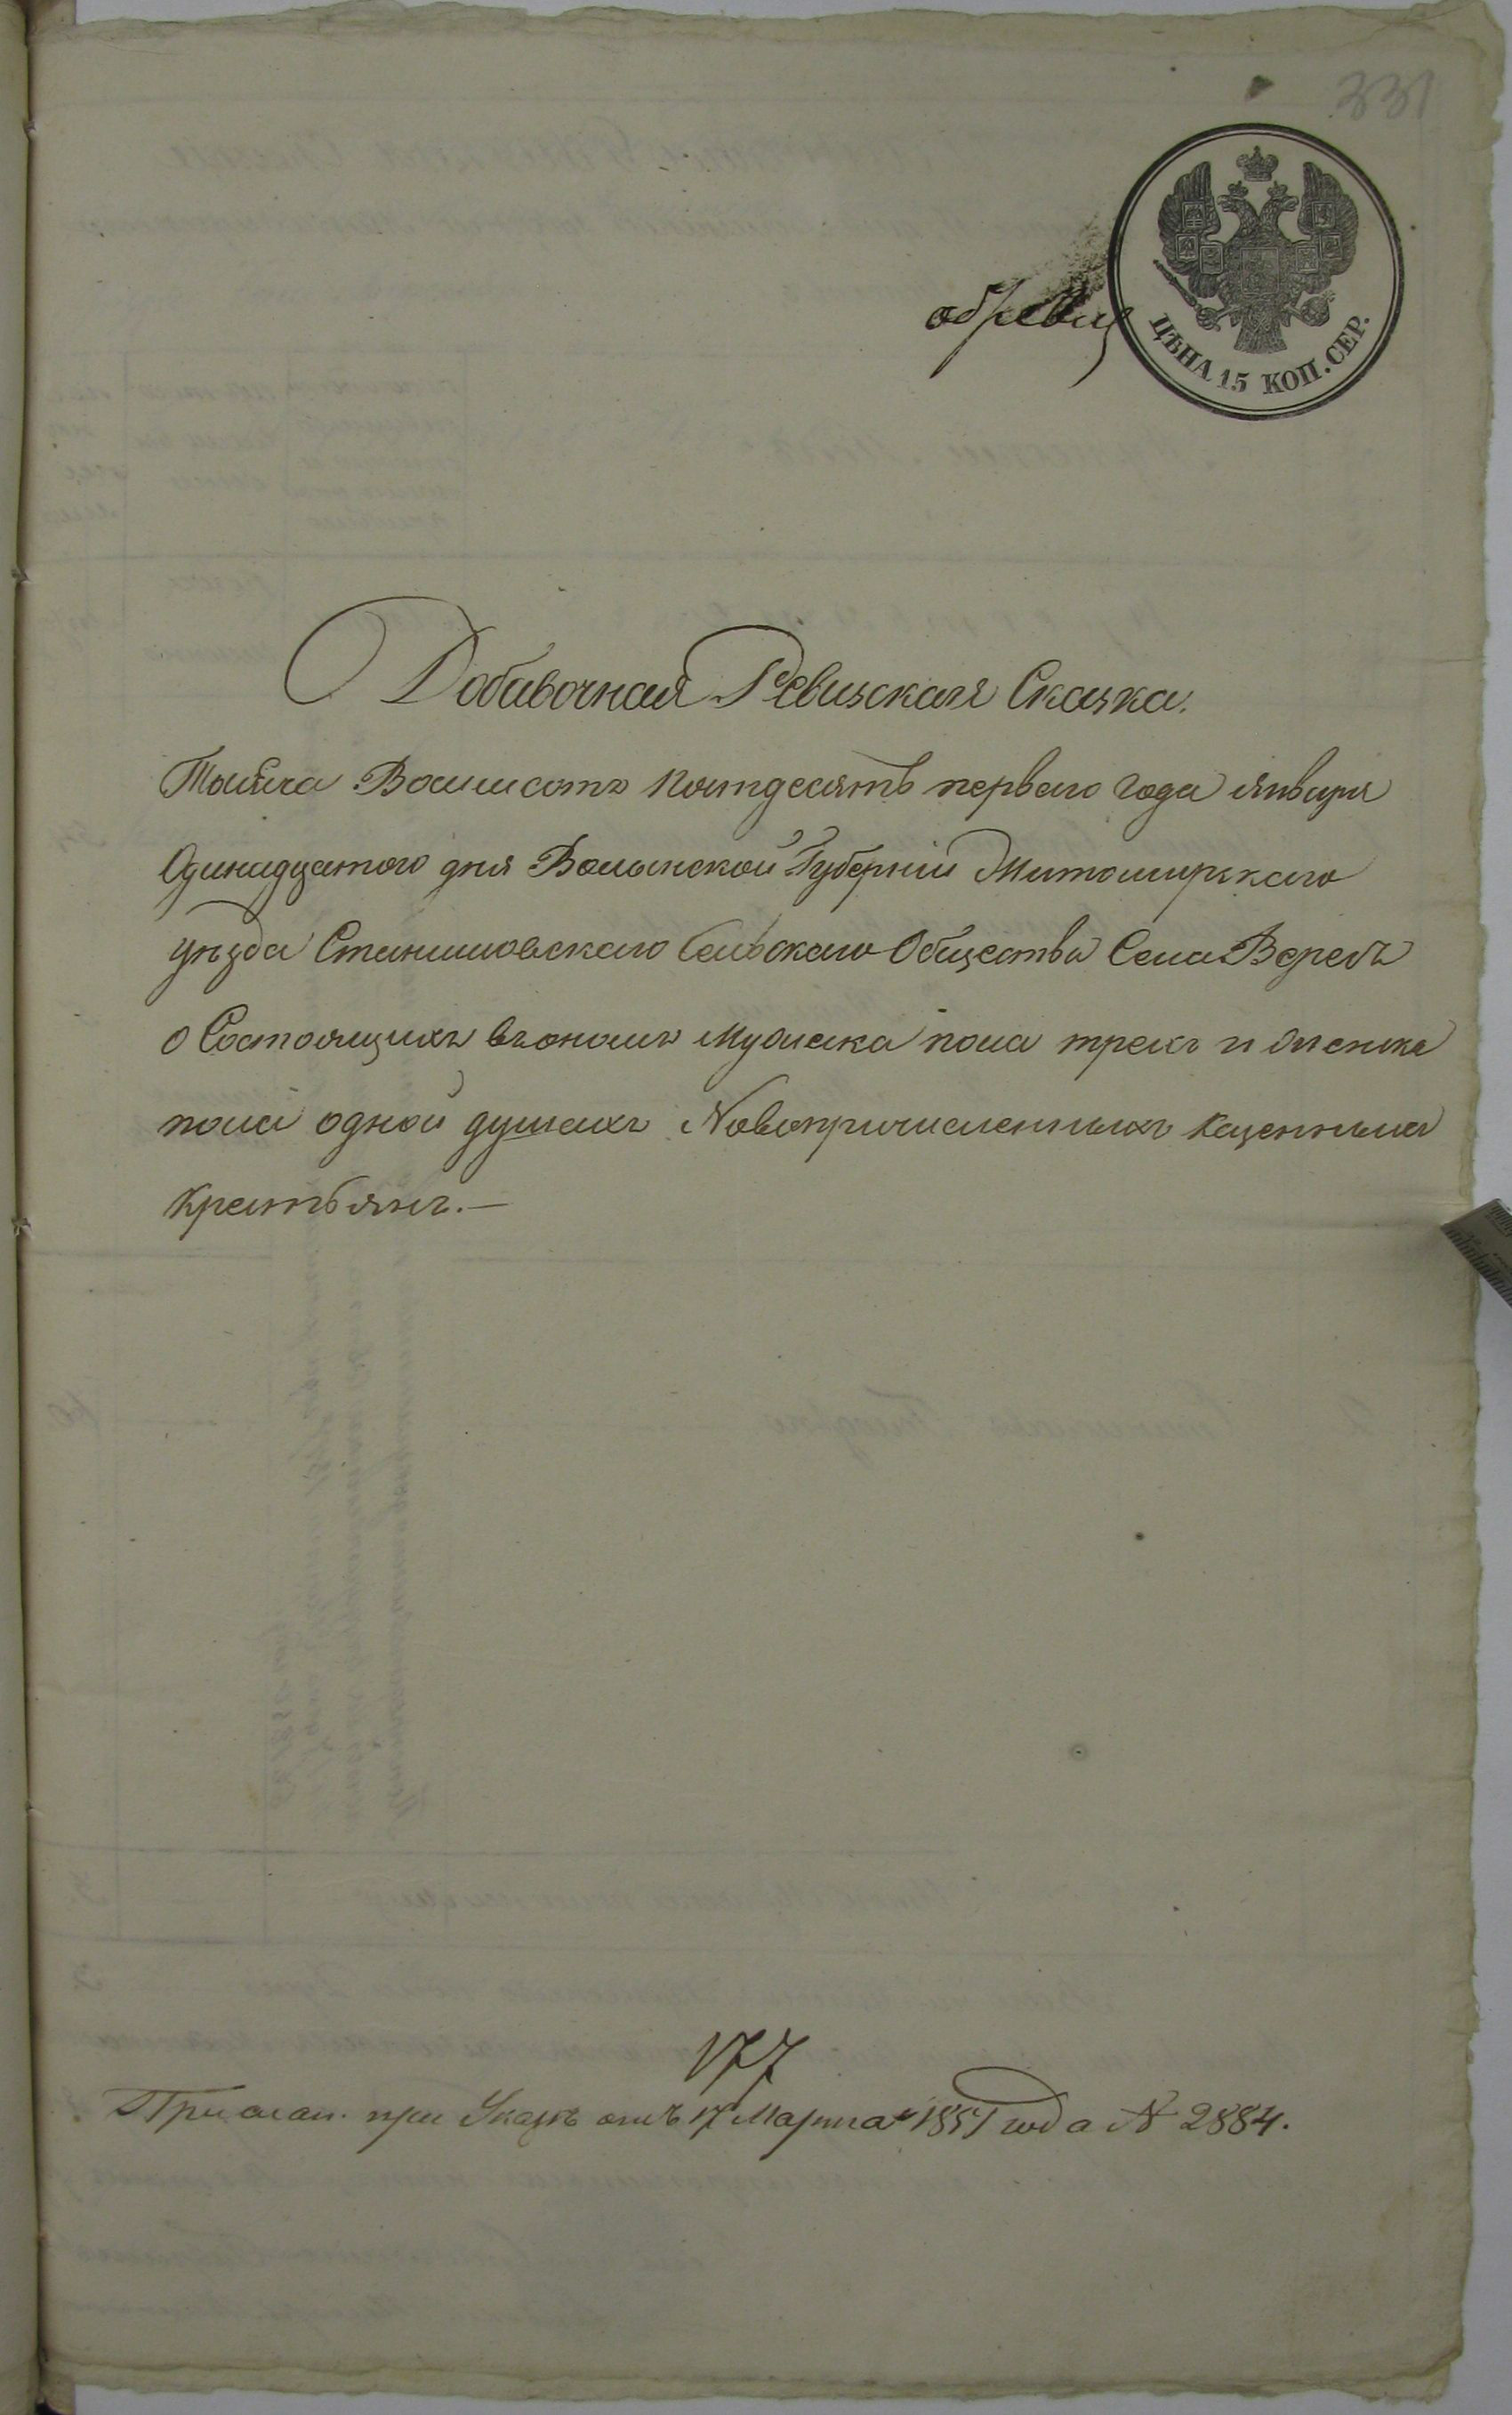 331
ЦѢНА 15 КОП. СЕР.
Добавочная Ревизская Сказка.
Тысяча Восмисотъ пятдесятъ перваго года января
Одинадцатого дня Волынской Губерніи Житомирскаго
уѣзда Станишовскаго Сельскаго Общества Села Вересъ
о Состоящихъ въономъ Мужеска пола трехъ и Женска
пола одной душахъ Новопричисленныхъ Казенныхъ
Крестьянъ.—
177
Прислан. при Указѣ отъ 17 Марта 1851 года № 2884.